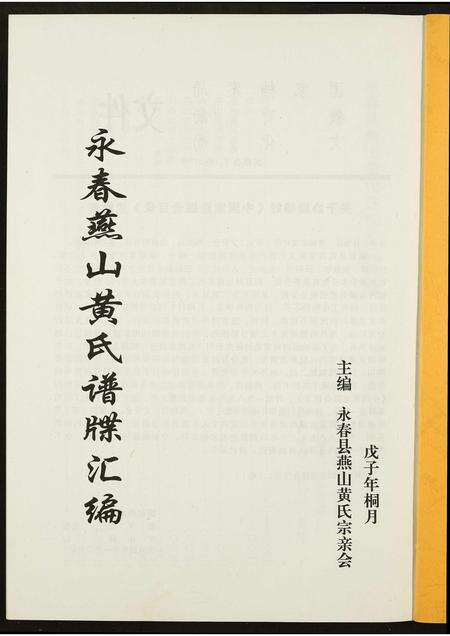 戊子年桐月
主编 永春县燕山黄氏宗亲会
永春燕山黄氏谱牒汇编